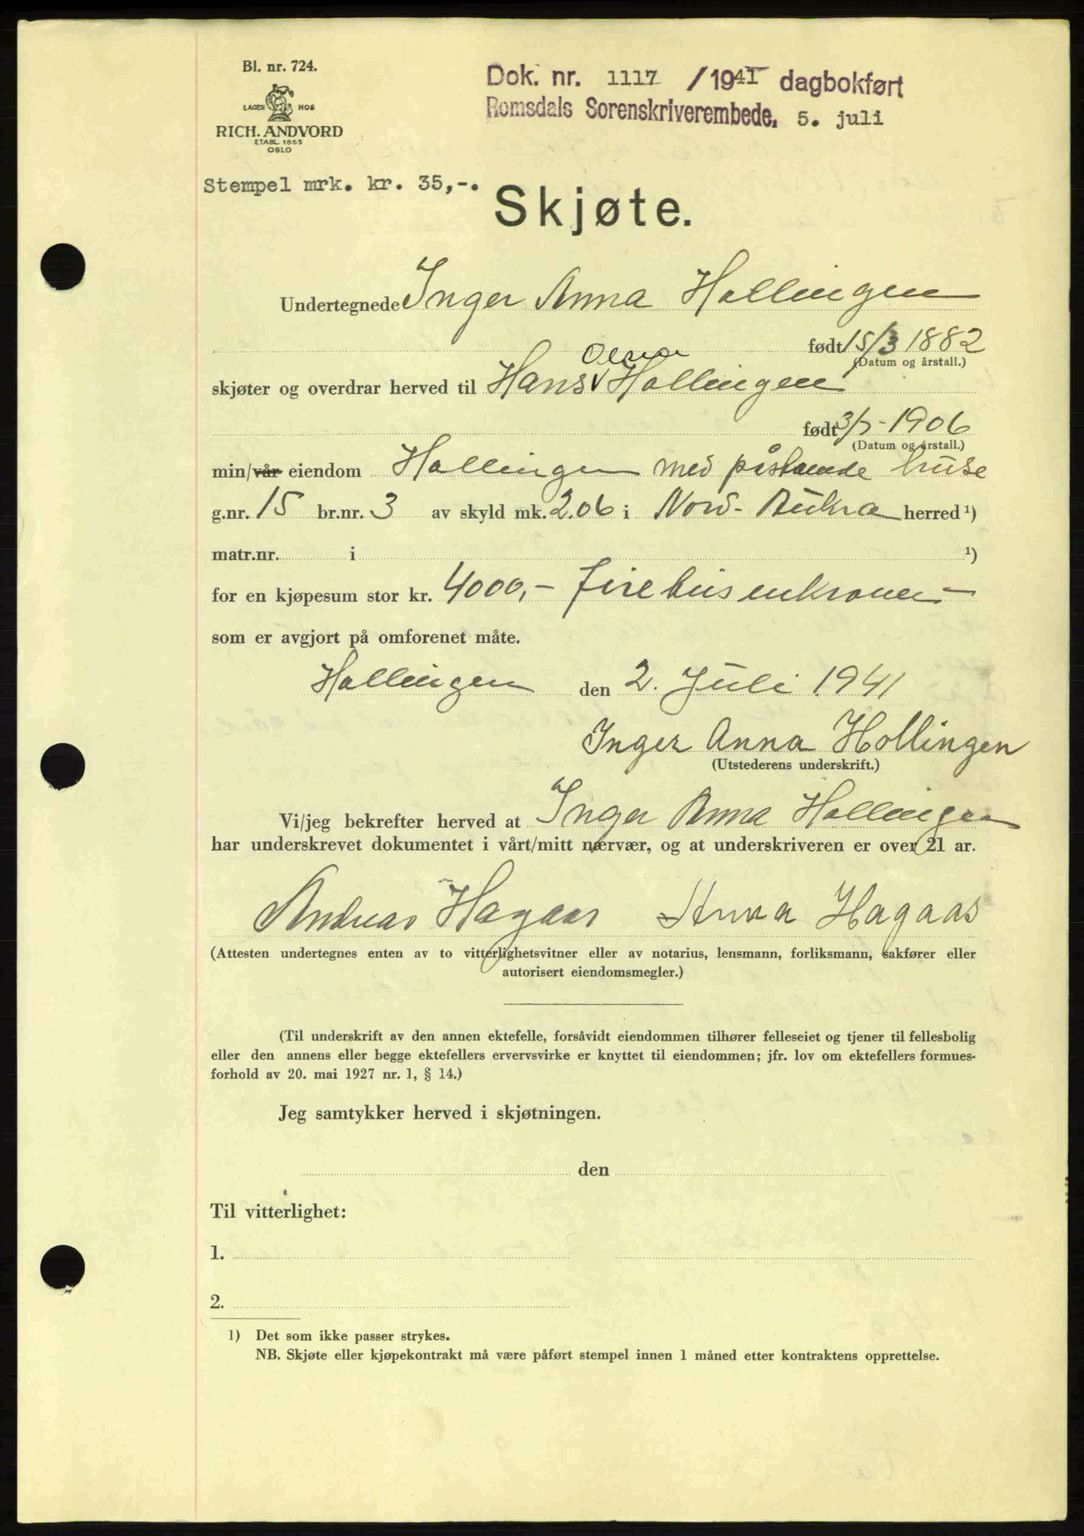 Bl. nr. 724.
LAGER HOS
RICH. ANDVORD
ETABL. 1865
OSLO
Dok. nr. 1117 /1941 dagbokført
Romsdals Sorenskriverembede, 5. juli
Stempel mrk. kr. 35,-.
Skjøte.
Undertegnede Inger Anna Hollingen
født 15/3 1882
(Datum og årstall.)
Olena
skjøter og overdrar herved til Hans V Hollingen
født 3/5-1906
(Datum og årstall.)
min/vår eiendom Hollingen med påstaaende huse
g.nr. 15 br.nr. 3 av skyld mk. 2.06 i Nord-Aukra herred ¹)
matr.nr. i ¹)
for en kjøpesum stor kr. 4000,- firetusenkroner-
som er avgjort på omforenet måte.
Hollingen den 2. Juli 1941
Inger Anna Hollingen
(Utstederens underskrift.)
Vi/jeg bekrefter herved at Inger Anna Hollingen
har underskrevet dokumentet i vårt/mitt nærvær, og at underskriveren er over 21 ar.
Andreas Hagaas Anna Hagaas
(Attesten undertegnes enten av to vitterlighetsvitner eller av notarius, lensmann, forliksmann, sakfører eller
autorisert eiendomsmegler.)
(Til underskrift av den annen ektefelle, forsåvidt eiendommen tilhører felleseiet og tjener til fellesbolig
eller den annens eller begge ektefellers ervervsvirke er knyttet til eiendommen; jfr. lov om ektefellers formues-
forhold av 20. mai 1927 nr. 1, § 14.)
Jeg samtykker herved i skjøtningen.
den
Til vitterlighet:
1.
2.
1) Det som ikke passer strykes.
NB. Skjøte eller kjøpekontrakt må være påført stempel innen 1 måned etter kontraktens opprettelse.